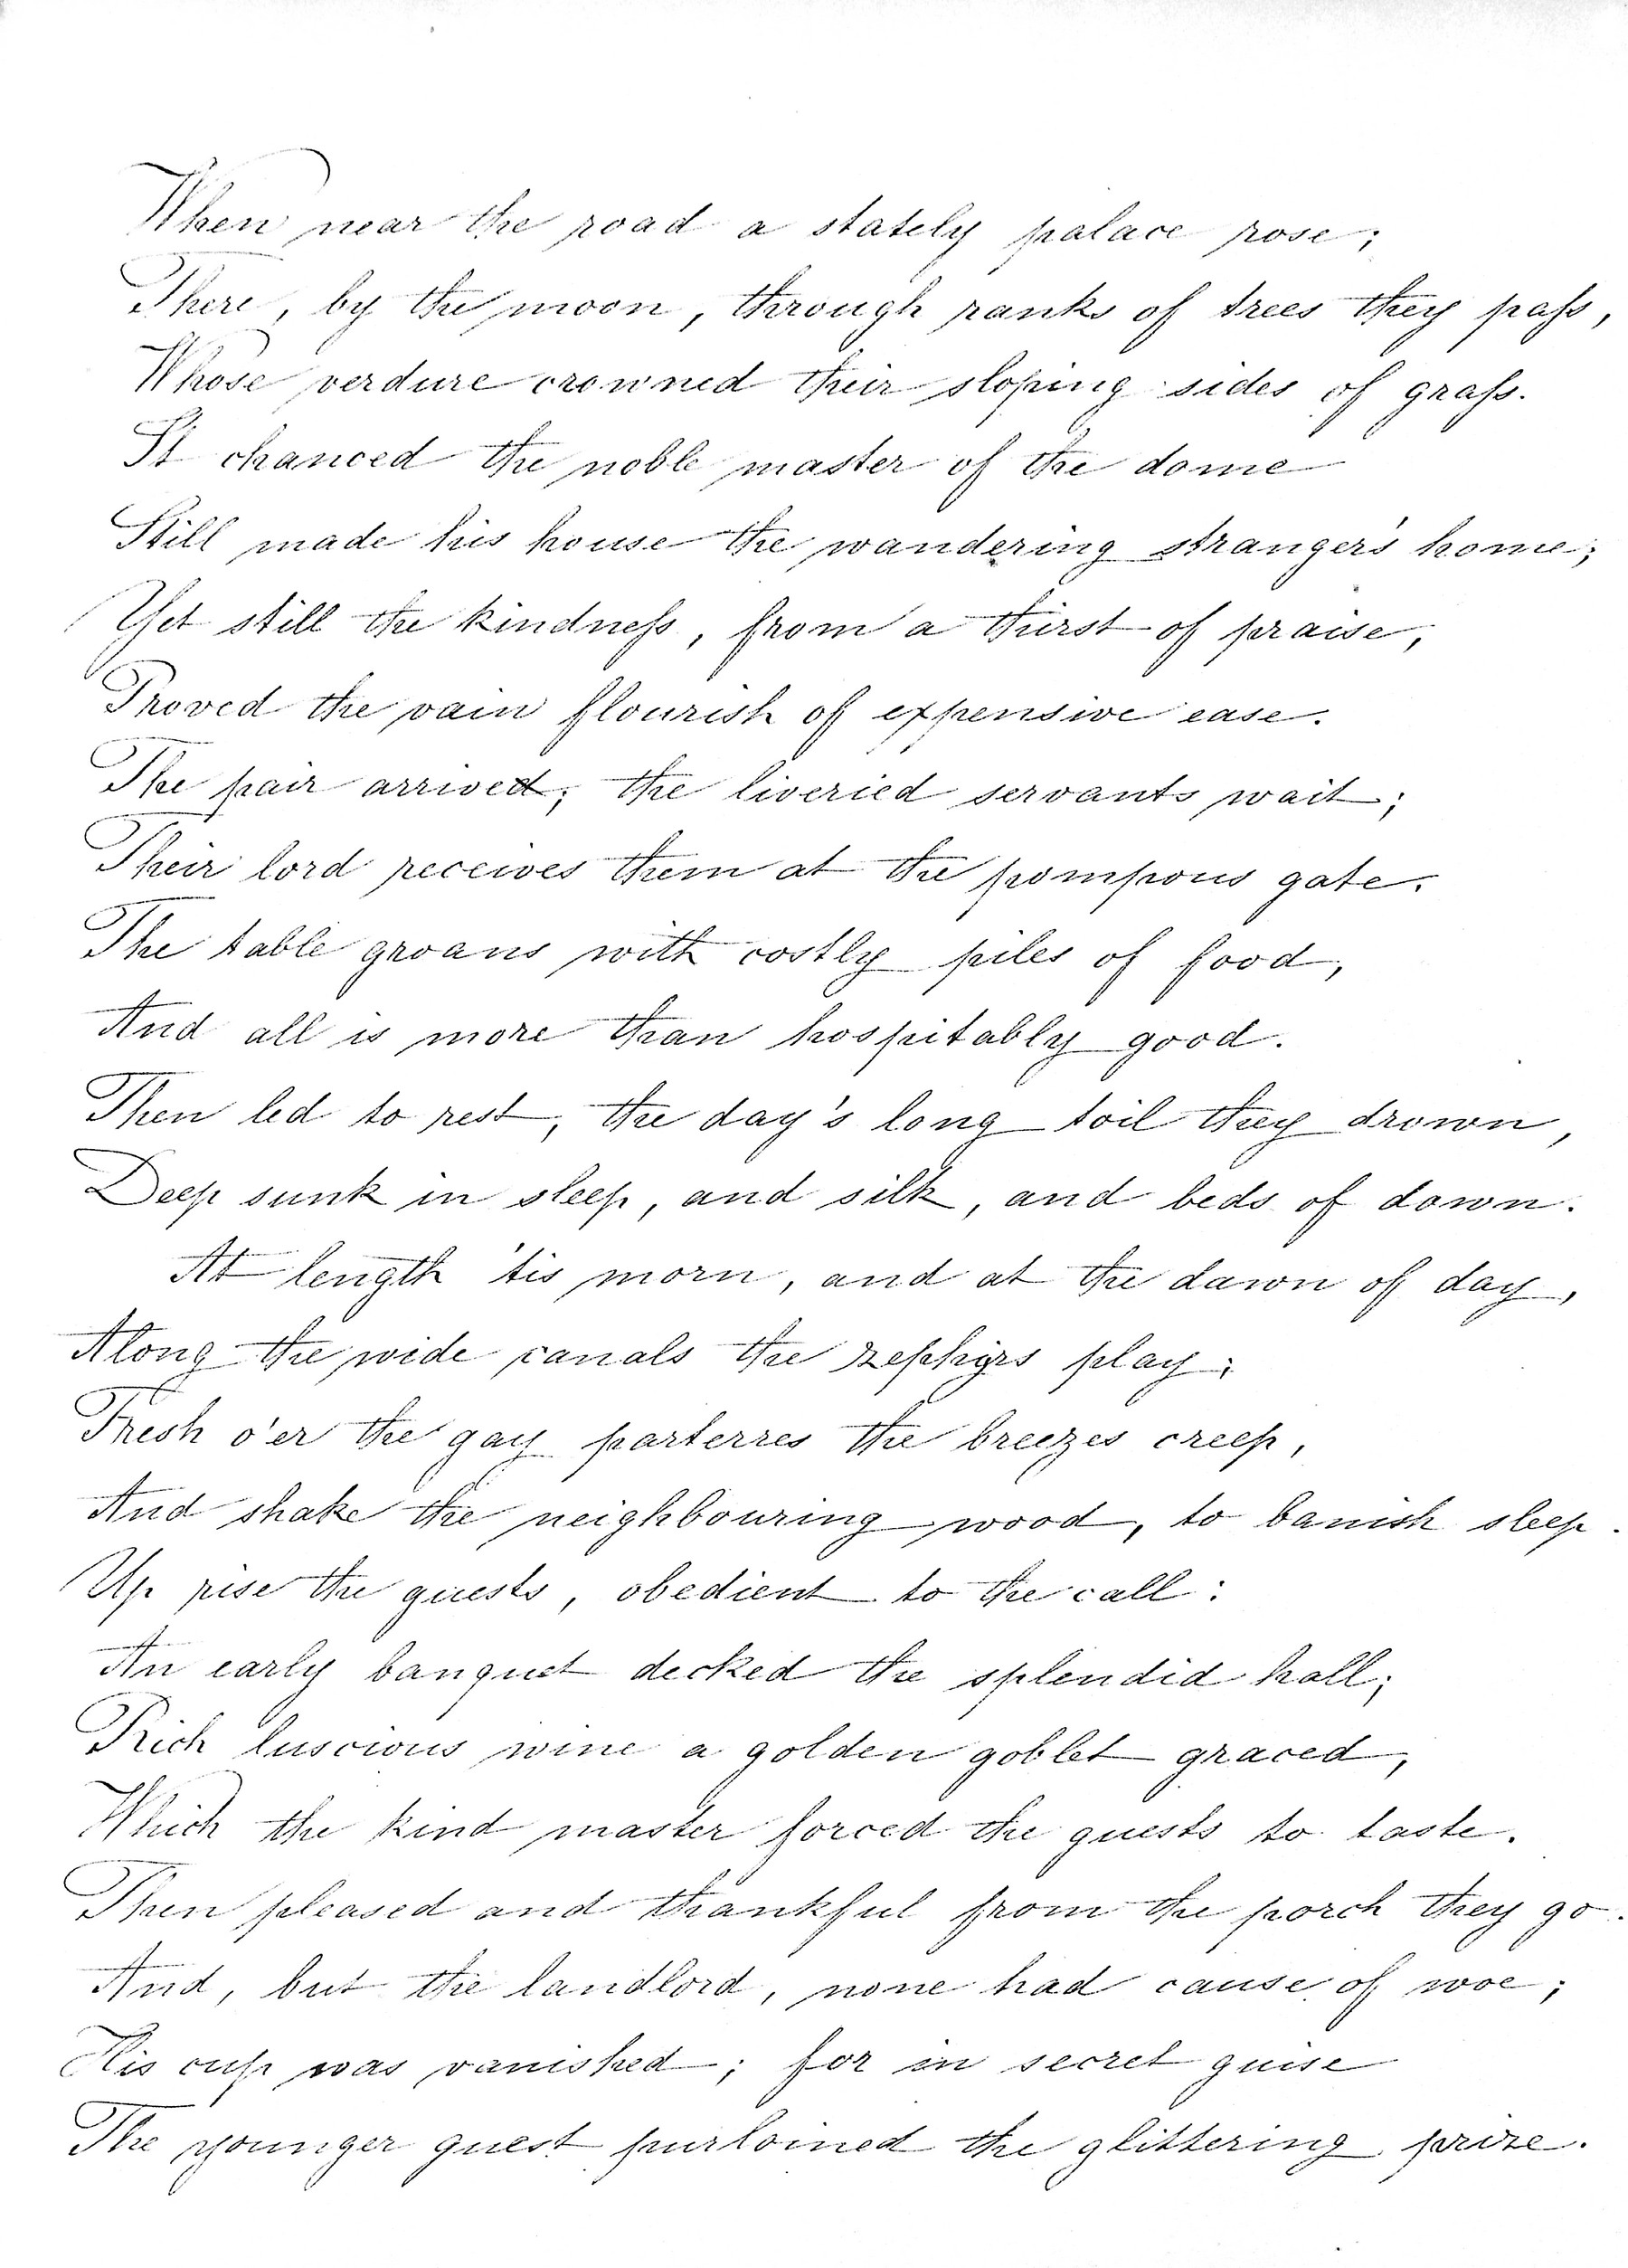 When near the road a stately palace rose;
There, by the moon, through ranks of trees they paſs,
Whose verdure crowned their sloping sides of graſs.
It chanced the noble master of the dome
Still made his house the wandering stranger's home;
Yet still the kindneſs, from a thirst of praise,
Proved the vain flourish of expensive ease.
The pair arrived; the liveried servants wait;
Their lord receives them at the pompous gate.
The table groans with costly piles of food,
And all is more than hospitably good.
Then led to rest, the day's long toil they drown,
Deep sunk in sleep, and silk, and beds of down.
At length 'tis morn, and at the dawn of day,
Along the wide canals the zephyrs play;
Fresh o'er the gay parterres the breezes creep,
And shake the neighbouring wood, to banish sleep.
Up rise the guests, obedient to the call:
An early banquet decked the splendid hall;
Rich luscious wine a golden goblet graced,
Which the kind master forced the guests to taste.
Then pleased and thankful from the porch they go.
And, but the landlord, none had cause of woe;
His cup was vanished; for in secret guise
The younger guest purloined the glittering prize.